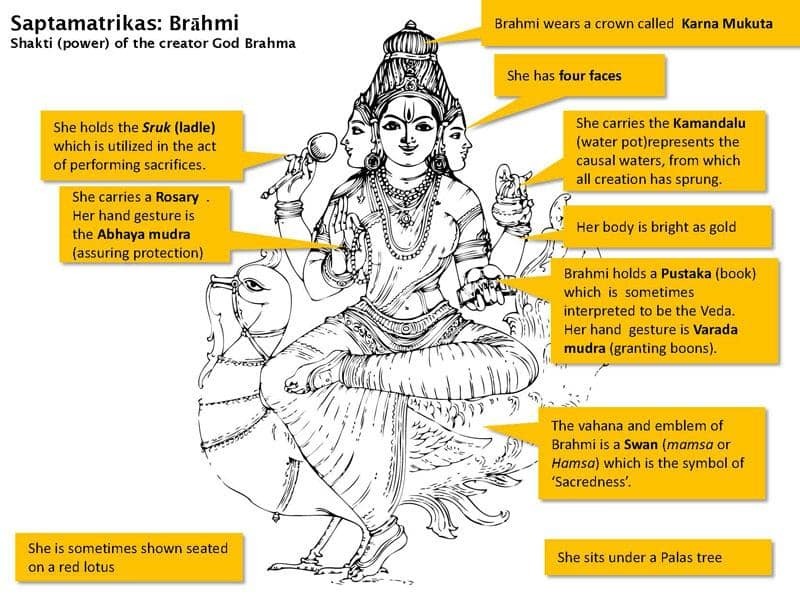 Saptamatrikas: Brāhmi
Shakti (power) of the creator God Brahma
Brahmi wears a crown called Karna Mukuta
She has four faces
She holds the Sruk (ladle)
which is utilized in the act
of performing sacrifices.
She carries the Kamandalu
(water pot)represents the
causal waters, from which
all creation has sprung.
She carries a Rosary .
Her hand gesture is
the Abhaya mudra
(assuring protection)
Her body is bright as gold
Brahmi holds a Pustaka (book)
which is sometimes
interpreted to be the Veda.
Her hand gesture is Varada
mudra (granting boons).
The vahana and emblem of
Brahmi is a Swan (mamsa or
Hamsa) which is the symbol of
‘Sacredness’.
She is sometimes shown seated
on a red lotus
She sits under a Palas tree